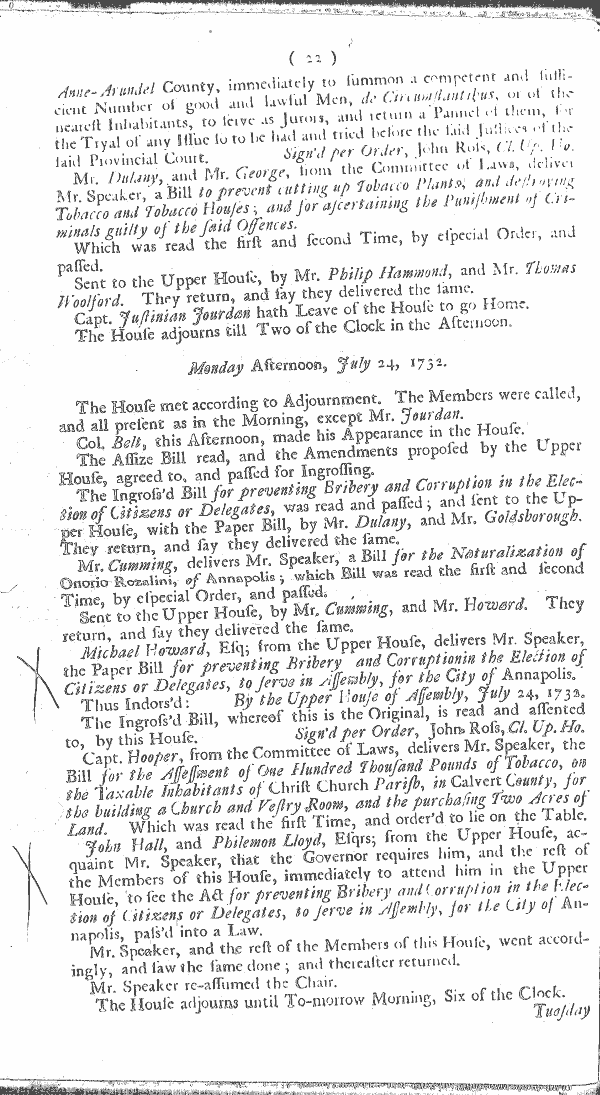 ( 22 )
Anne-Arundel County, immediately to ſummon a competent and ſuffi-
cient Number of good and lawful Men, de Circumſtantibus, or of the
neareſt Inhabitants, to ſerve as Jurors, and return a Pannel of them, for
the Tryal of any Iſſue ſo to be had and tried before the ſaid Juſtices of the
ſaid Provincial Court. Sign'd per Order, John Roſs, Cl. Up. Ho.
Mr. Dulany, and Mr. George, from the Committee of Laws, deliver
Mr. Speaker, a Bill to prevent cutting up Tobacco Plants, and deſtroying
Tobacco and Tobacco Houſes; and for aſcertaining the Puniſhment of Cri-
minals guilty of the ſaid Offences.
Which was read the firſt and ſecond Time, by eſpecial Order, and
paſſed.
Sent to the Upper Houſe, by Mr. Philip Hammond, and Mr. Thomas
Woolford. They return, and ſay they delivered the ſame.
Capt. Juſtinian Jourdan hath Leave of the Houſe to go Home.
The Houſe adjourns till Two of the Clock in the Afternoon.
Monday Afternoon, July 24, 1732.
The Houſe met according to Adjournment. The Members were called,
and all preſent as in the Morning, except Mr. Jourdan.
Col. Belt, this Afternoon, made his Appearance in the Houſe.
The Aſſize Bill read, and the Amendments propoſed by the Upper
Houſe, agreed to, and paſſed for Ingroſſing.
The Ingroſs'd Bill for preventing Bribery and Corruption in the Elec-
tion of Citizens or Delegates, was read and paſſed; and ſent to the Up-
per Houſe, with the Paper Bill, by Mr. Dulany, and Mr. Goldsborough.
They return, and ſay they delivered the ſame.
Mr. Cumming, delivers Mr. Speaker, a Bill for the Naturalization of
Onorio Rozalini, of Annapolis; which Bill was read the firſt and ſecond
Time, by eſpecial Order, and paſſed.
Sent to the Upper Houſe, by Mr. Cumming, and Mr. Howard. They
return, and ſay they delivered the ſame.
Michael Howard, Eſq; from the Upper Houſe, delivers Mr. Speaker,
the Paper Bill for preventing Bribery and Corruptionin the Election of
Citizens or Delegates, to ſerve in Aſſembly, for the City of Annapolis.
Thus Indors'd: By the Upper Houſe of Aſſembly, July 24, 1732.
The Ingroſs'd Bill, whereof this is the Original, is read and aſſented
to, by this Houſe. Sign'd per Order, John Roſs, Cl. Up. Ho.
Capt. Hooper, from the Committee of Laws, delivers Mr. Speaker, the
Bill for the Aſſeſſment of One Hundred Thouſand Pounds of Tobacco, on
the Taxable Inhabitants of Chriſt Church Pariſh, in Calvert County, for
the building a Church and Veſtry Room, and the purchaſing Two Acres of
Land. Which was read the firſt Time, and order'd to lie on the Table.
John Hall, and Philemon Lloyd, Eſqrs; from the Upper Houſe, ac-
quaint Mr. Speaker, that the Governor requires him, and the reſt of
the Members of this Houſe, immediately to attend him in the Upper
Houſe, to ſee the Act for preventing Bribery and Corruption in the Elec-
tion of Citizens or Delegates, to ſerve in Aſſembly, for the City of An-
napolis, paſs'd into a Law.
Mr. Speaker, and the reſt of the Members of this Houſe, went accord-
ingly, and ſaw the ſame done; and thereafter returned.
Mr. Speaker re-aſſumed the Chair.
The Houſe adjourns until To-morrow Morning, Six of the Clock.
Tueſday